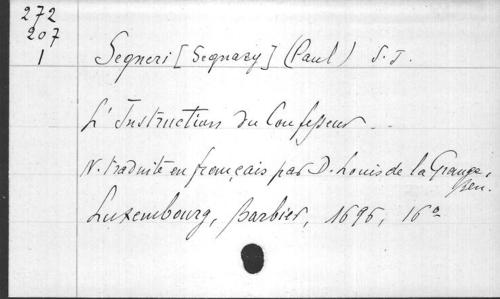 272
207
1
Segneri [Segnary] (Paul) S. J.
L'Instruction du Confesseur
N. traduite en français par D. Louis de la Grange,
Ben.
Luxembourg, Barbier, 1695, 16°